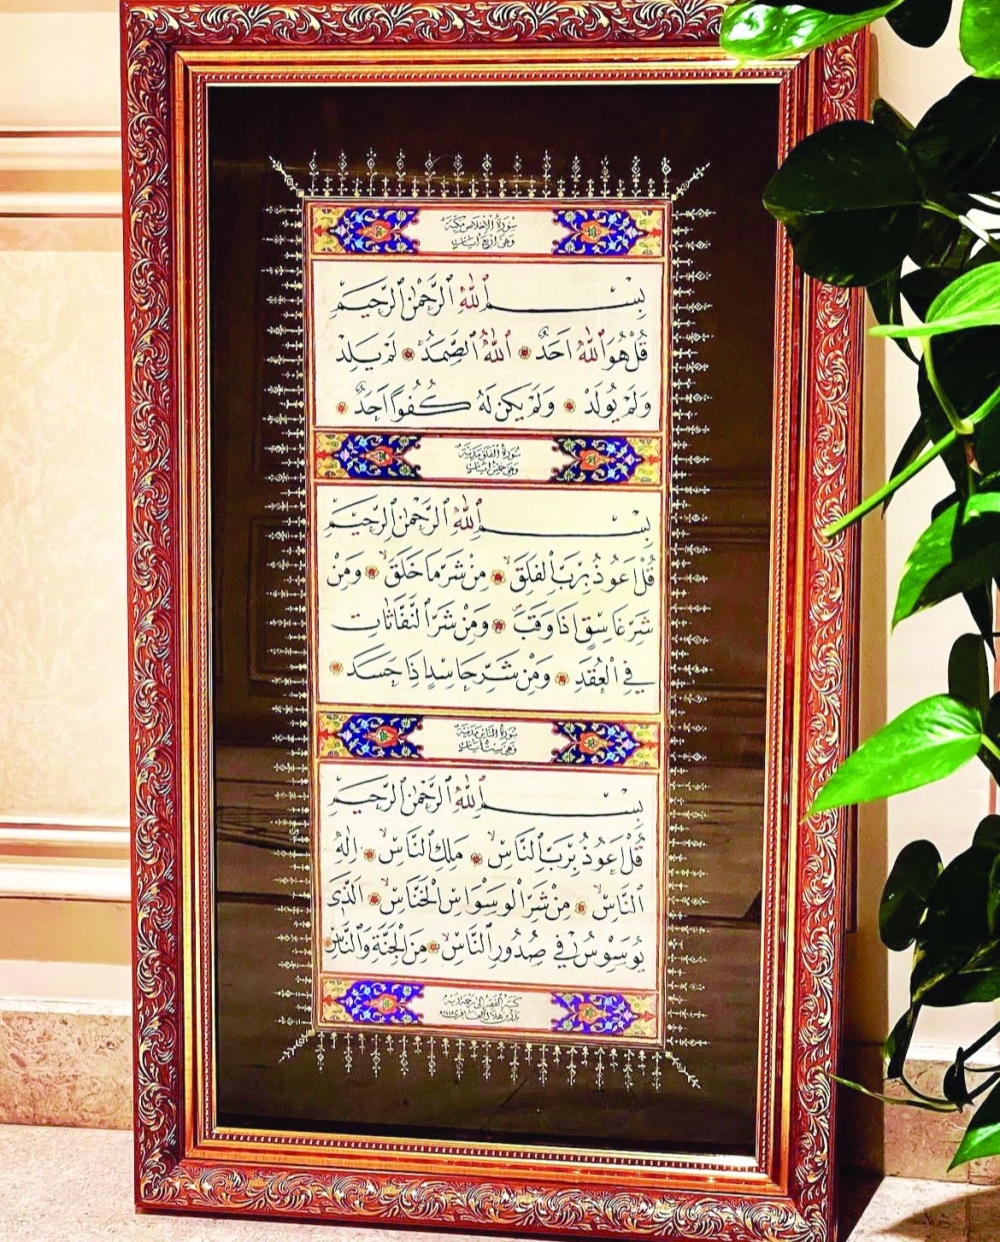 سورة الإخلاص مكية
وهي أربع آيات
بِسْمِ اللهِ الرَّحْمٰنِ الرَّحِيمِ
قُلْ هُوَ اللهُ اَحَدٌ ۞ اَللهُ الصَّمَدُ ۞ لَمْ يَلِدْ
وَلَمْ يُولَدْ ۞ وَلَمْ يَكُنْ لَهُ كُفُوًا اَحَدٌ ۞
سورة الفلق مدنية
وهي خمس آيات
بِسْمِ اللهِ الرَّحْمٰنِ الرَّحِيمِ
قُلْ اَعُوذُ بِرَبِّ الْفَلَقِ ۞ مِنْ شَرِّ مَا خَلَقَ ۞ وَمِنْ
شَرِّ غَاسِقٍ اِذَا وَقَبَ ۞ وَمِنْ شَرِّ النَّفَّاثَاتِ
فِي الْعُقَدِ ۞ وَمِنْ شَرِّ حَاسِدٍ اِذَا حَسَدَ ۞
سورة الناس مدنية
وهي ست آيات
بِسْمِ اللهِ الرَّحْمٰنِ الرَّحِيمِ
قُلْ اَعُوذُ بِرَبِّ النَّاسِ ۞ مَلِكِ النَّاسِ ۞ اِلٰهِ
النَّاسِ ۞ مِنْ شَرِّ الْوَسْوَاسِ الْخَنَّاسِ ۞ اَلَّذِي
يُوَسْوِسُ فِي صُدُورِ النَّاسِ ۞ مِنَ الْجِنَّةِ وَالنَّاسِ ۞
كتبه الفقير إلى رحمة ربه